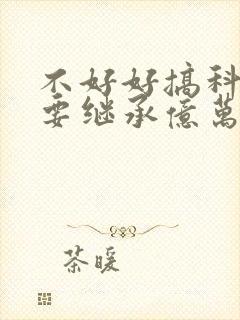 不好好搞科
要继承億萬
茶暖